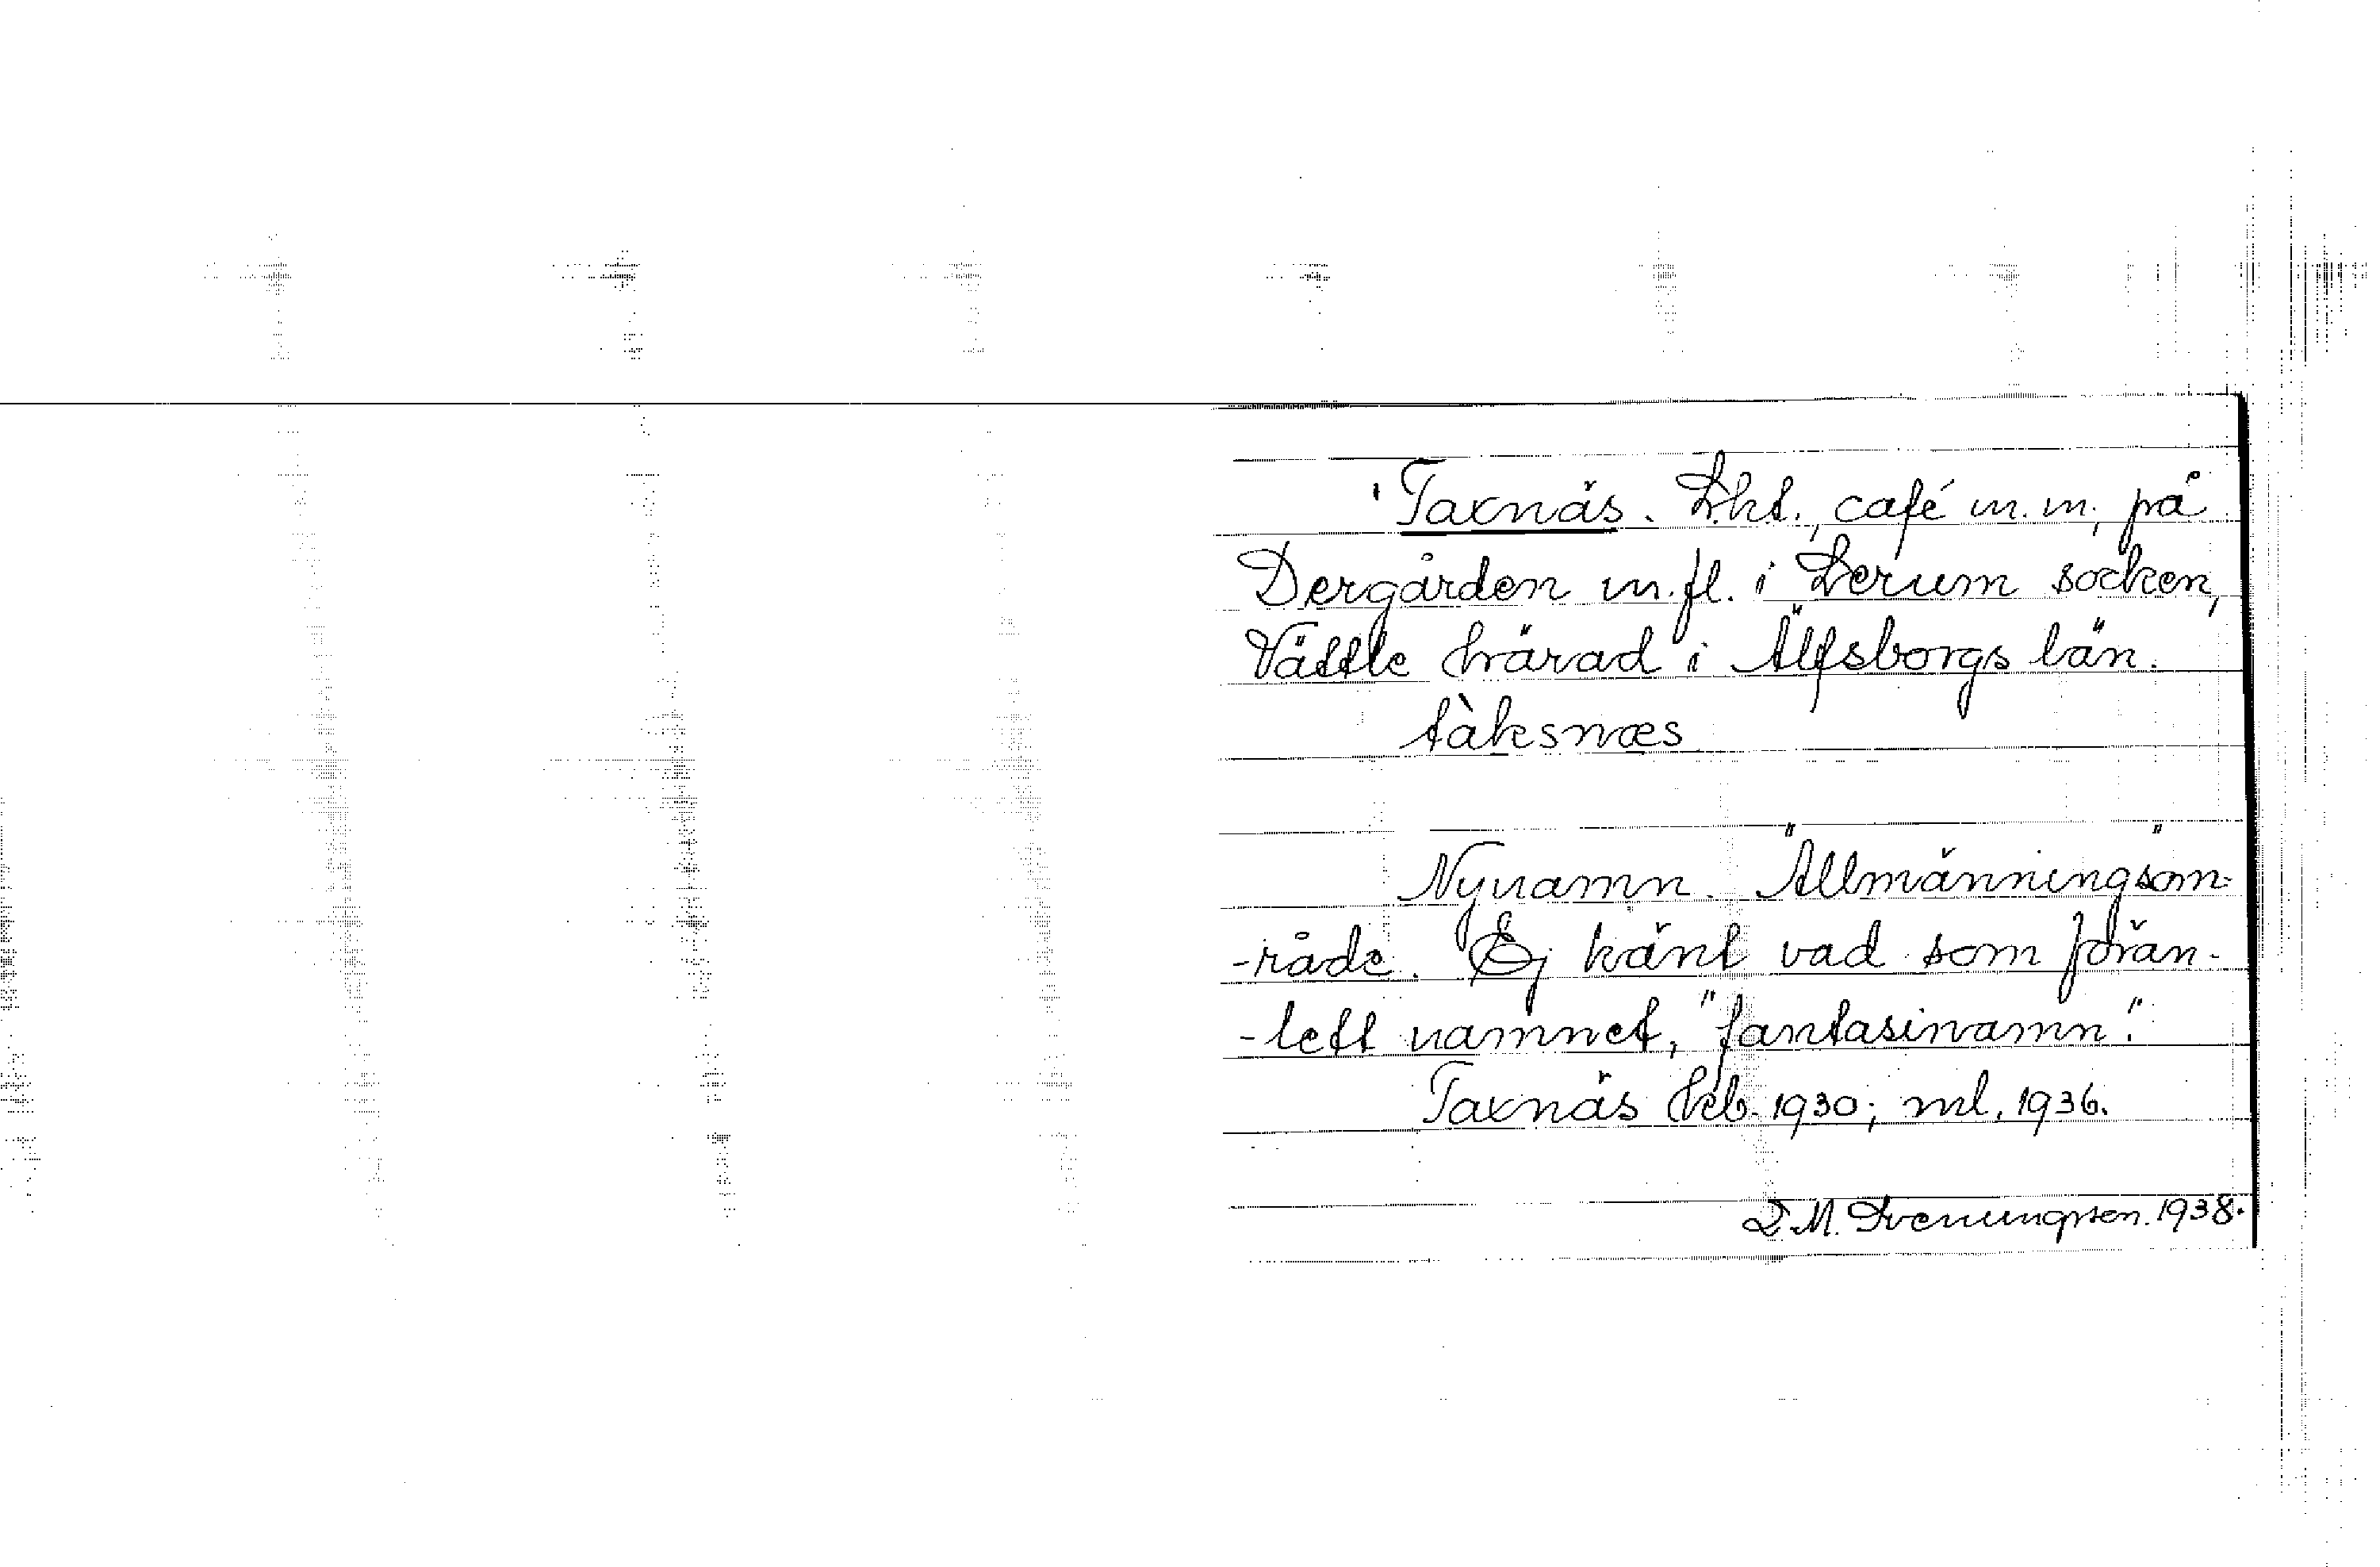 Taxnäs. Lht., café m.m., på
Dergården m.fl. i Lerum socken,
Vättle härad i Älfsborgs län.
tàksnæs
Nynamn. Allmänningsom-
-råde. Ej känt vad som föran-
-lett namnet, "fantasinamn".
Taxnäs kb. 1930; ml. 1936.
D.M. Svenungsson. 1938.